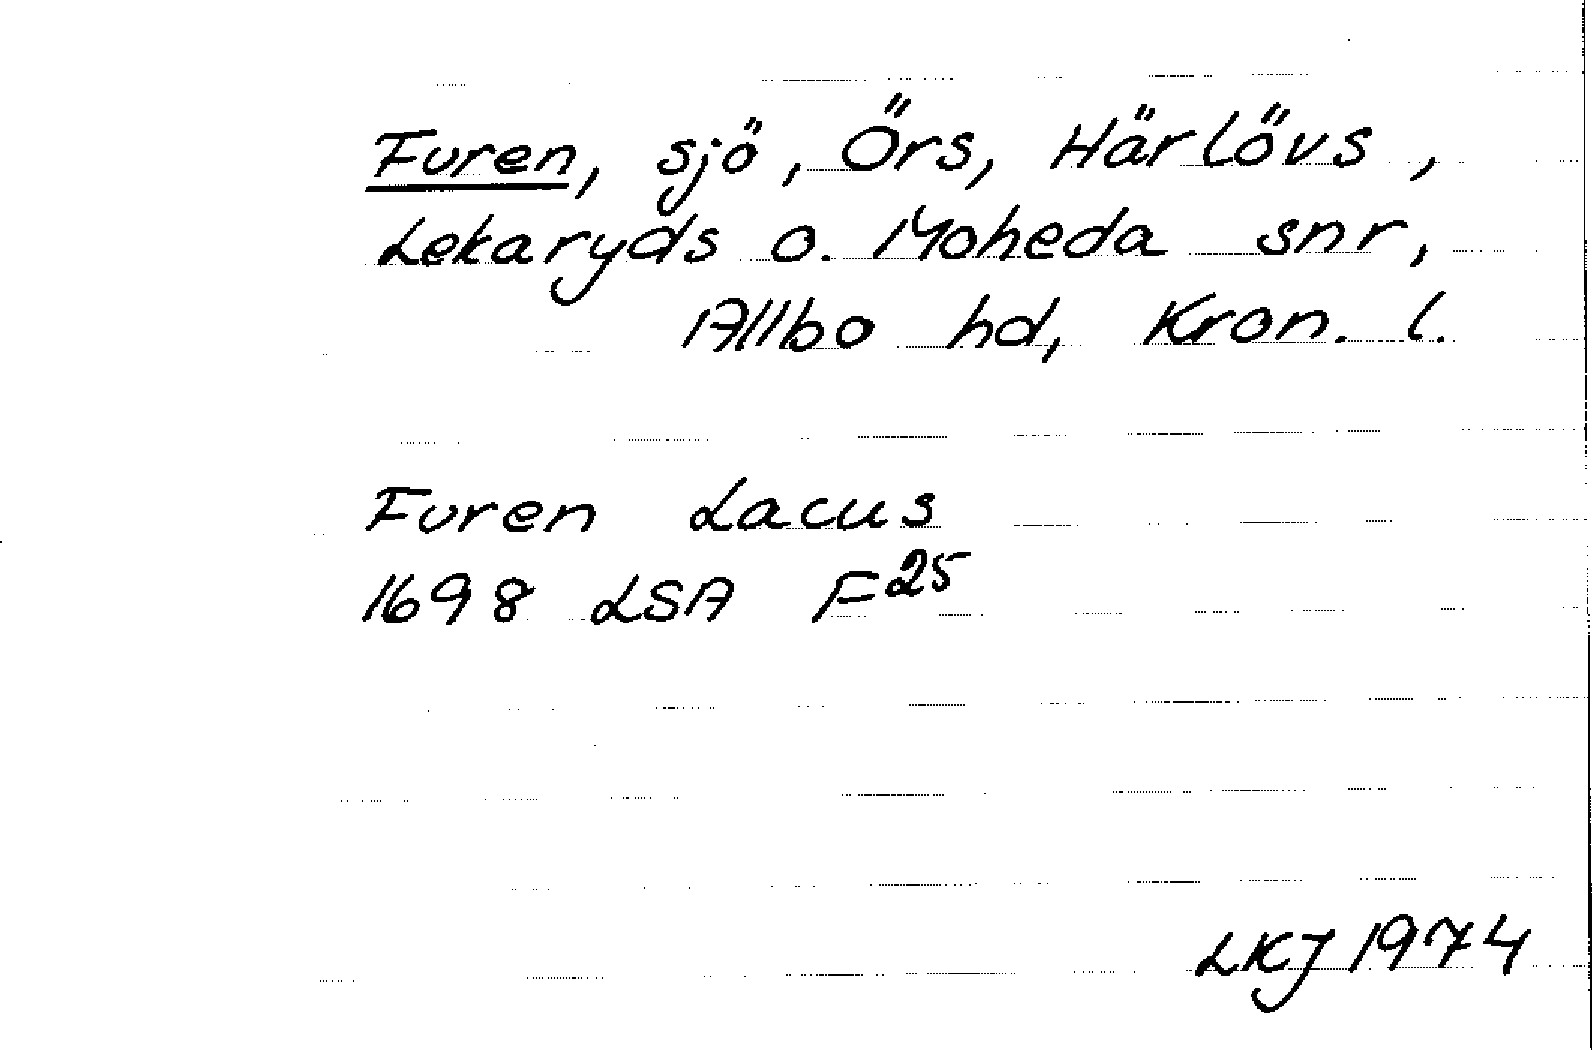 Furen, sjö, Örs, Härlövs,
Lekaryds o. Moheda snr,
Allbo hd, Kron. l.
Furen Lacus
1698 LSA F25
LKJ 1974